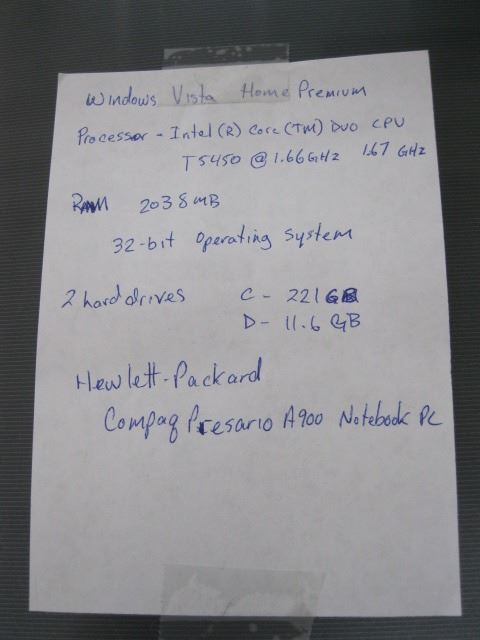 Windows Vista Home Premium
Processor - Intel(R) Core(TM) Duo CPU
T5450 @ 1.66GHz 1.67 GHz
RAM 2038 MB
32-bit Operating System
2 hard drives C - 221 GB
D - 11.6 GB
Hewlett-Packard
Compaq Presario A900 Notebook PC